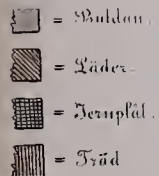 = Buldan.
= Läder.
= Jernplåt.
= Träd